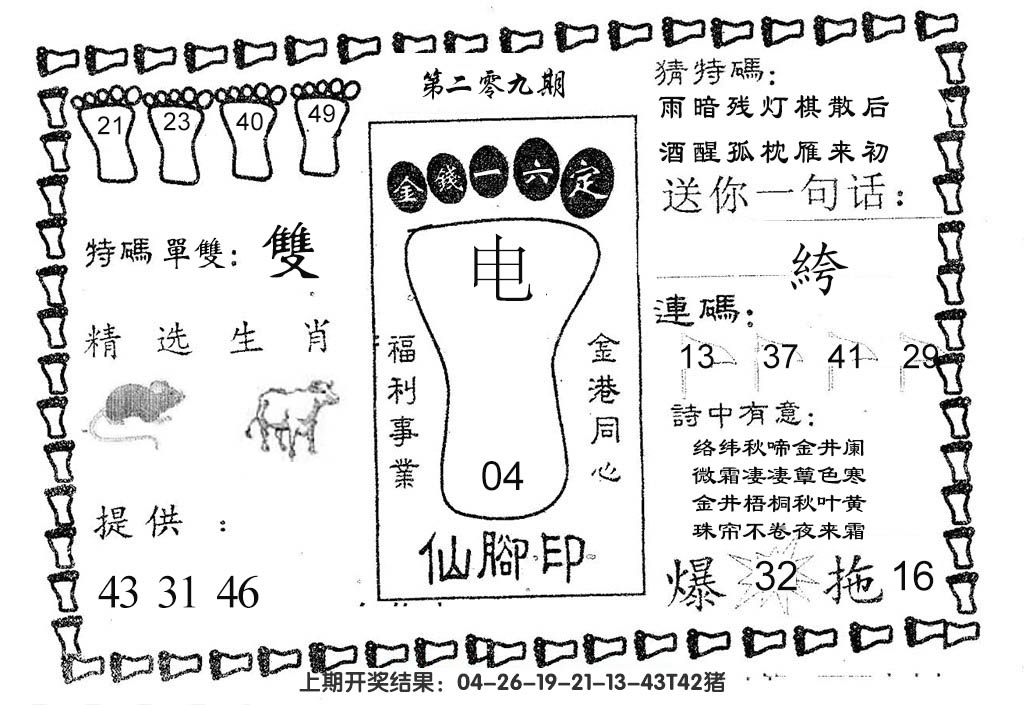 第二零九期
21 23 40 49
特碼單雙：雙
精选生肖
提供：
43 31 46
金錢一六定
电
福利事業
金港同心
04
仙腳印
猜特碼：
雨暗残灯棋散后
酒醒孤枕雁来初
送你一句话：
絝
連碼：
13 37 41 29
詩中有意：
络纬秋啼金井阑
微霜凄凄簟色寒
金井梧桐秋叶黄
珠帘不卷夜来霜
爆 32 拖 16
上期开奖结果：04-26-19-21-13-43T42猪